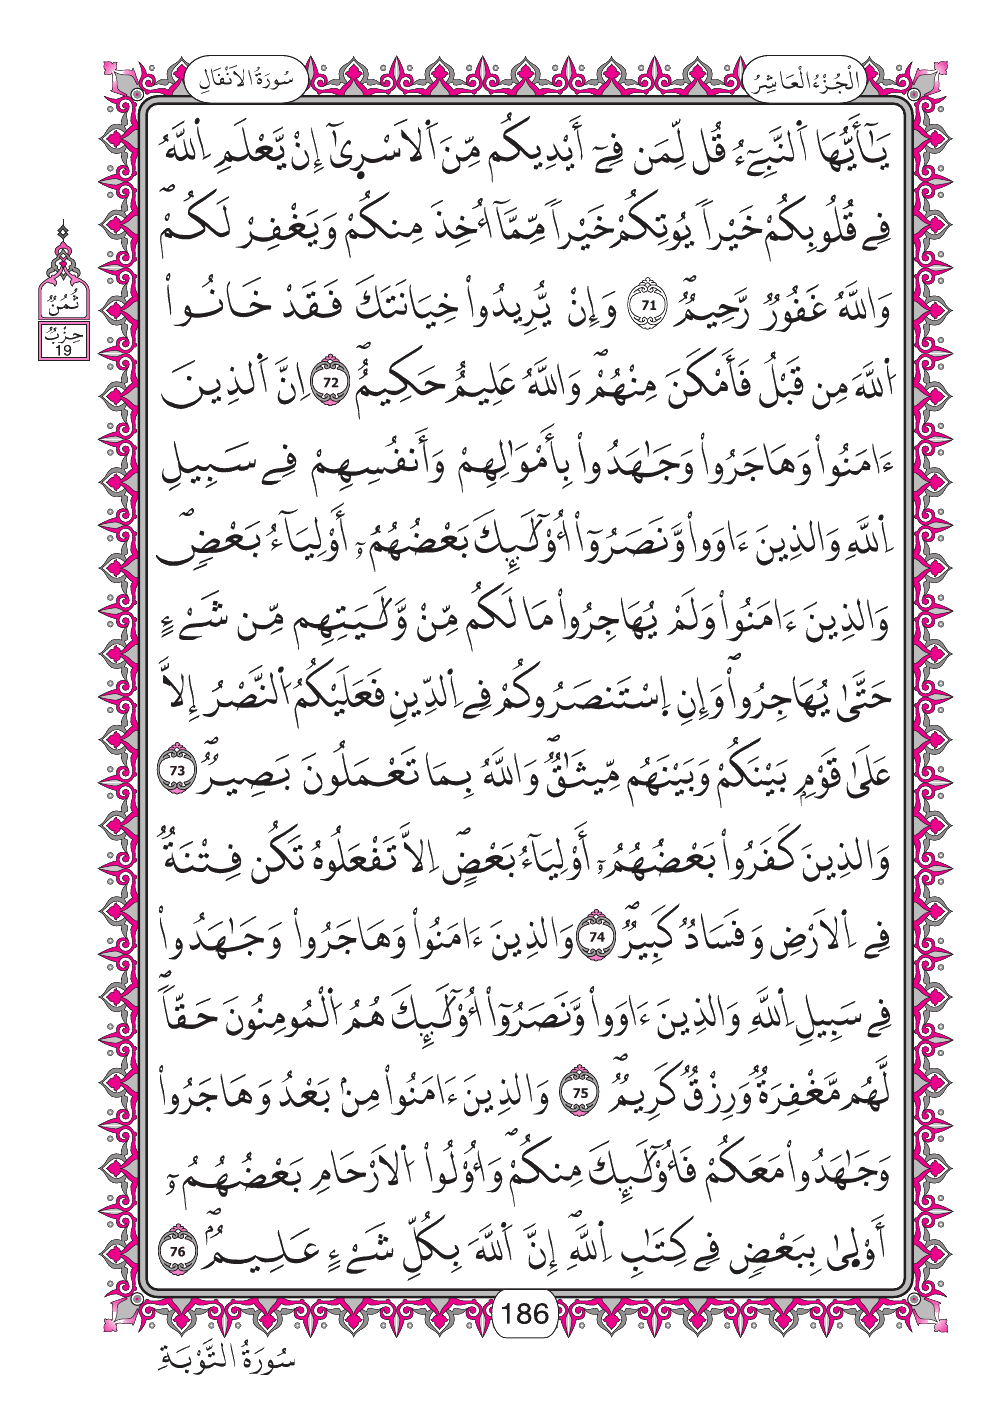 الْجُزْءُ الْعَاشِرُ
سُورَةُ الْأَنْفَالِ
يَـٰٓأَيُّهَا اَ۬لنَّبِيٓءُ قُل لِّمَن فِےٓ أَيْدِيكُم مِّنَ اَ۬لَاسْر۪يٰٓ إِنْ يَّعْلَمِ اِ۬للَّهُ
فِے قُلُوبِكُمْ خَيْراٗ يُوتِكُمْ خَيْراٗ مِّمَّآ أُخِذَ مِنكُمْ وَيَغْفِرْ لَكُمْۖ
وَاللَّهُ غَفُورٞ رَّحِيمٞۖ 71 وَإِنْ يُّرِيدُواْ خِيَانَتَكَ فَقَدْ خَانُواْ
اُ۬للَّهَ مِن قَبْلُ فَأَمْكَنَ مِنْهُمْۖ وَاللَّهُ عَلِيمٌ حَكِيمٌۖ 72 اِنَّ اَ۬لذِينَ
ءَامَنُواْ وَهَاجَرُواْ وَجَـٰهَدُواْ بِأَمْوَٰلِهِمْ وَأَنفُسِهِمْ فِے سَبِيلِ
اِ۬للَّهِ وَالذِينَ ءَاوَواْ وَّنَصَرُوٓاْ أُوْلَـٰٓئِكَ بَعْضُهُمُۥٓ أَوْلِيَآءُ بَعْضٖۖ
وَالذِينَ ءَامَنُواْ وَلَمْ يُهَاجِرُواْ مَا لَكُم مِّنْ وَّلَـٰيَتِهِم مِّن شَےْءٍ
حَتَّىٰ يُهَاجِرُواْۖ وَإِنِ اِ۪سْتَنصَرُوكُمْ فِے اِ۬لدِّينِ فَعَلَيْكُمُ اُ۬لنَّصْرُ إِلَّا
عَلَىٰ قَوْمِۢ بَيْنَكُمْ وَبَيْنَهُم مِّيثَـٰقٞۖ وَاللَّهُ بِمَا تَعْمَلُونَ بَصِيرٞۖ 73
وَالذِينَ كَفَرُواْ بَعْضُهُمُۥٓ أَوْلِيَآءُ بَعْضٍۖ اِلَّا تَفْعَلُوهُ تَكُن فِتْنَةٞ
فِے اِ۬لَارْضِ وَفَسَادٞ كَبِيرٞۖ 74 وَالذِينَ ءَامَنُواْ وَهَاجَرُواْ وَجَـٰهَدُواْ
فِے سَبِيلِ اِ۬للَّهِ وَالذِينَ ءَاوَواْ وَّنَصَرُوٓاْ أُوْلَـٰٓئِكَ هُمُ اُ۬لْمُومِنُونَ حَقّاٗۖ
لَّهُم مَّغْفِرَةٞ وَرِزْقٞ كَرِيمٞۖ 75 وَالذِينَ ءَامَنُواْ مِنۢ بَعْدُ وَهَاجَرُواْ
وَجَـٰهَدُواْ مَعَكُمْ فَأُوْلَـٰٓئِكَ مِنكُمْۖ وَأُوْلُواْ اُ۬لَارْحَامِ بَعْضُهُمُۥٓ
أَوْل۪يٰ بِبَعْضٖ فِے كِتَـٰبِ اِ۬للَّهِۖ إِنَّ اَ۬للَّهَ بِكُلِّ شَےْءٍ عَلِيمٞۖ 76
ثُمُنُ
حِزْبٌ
19
186
سُورَةُ التَّوْبَةِ